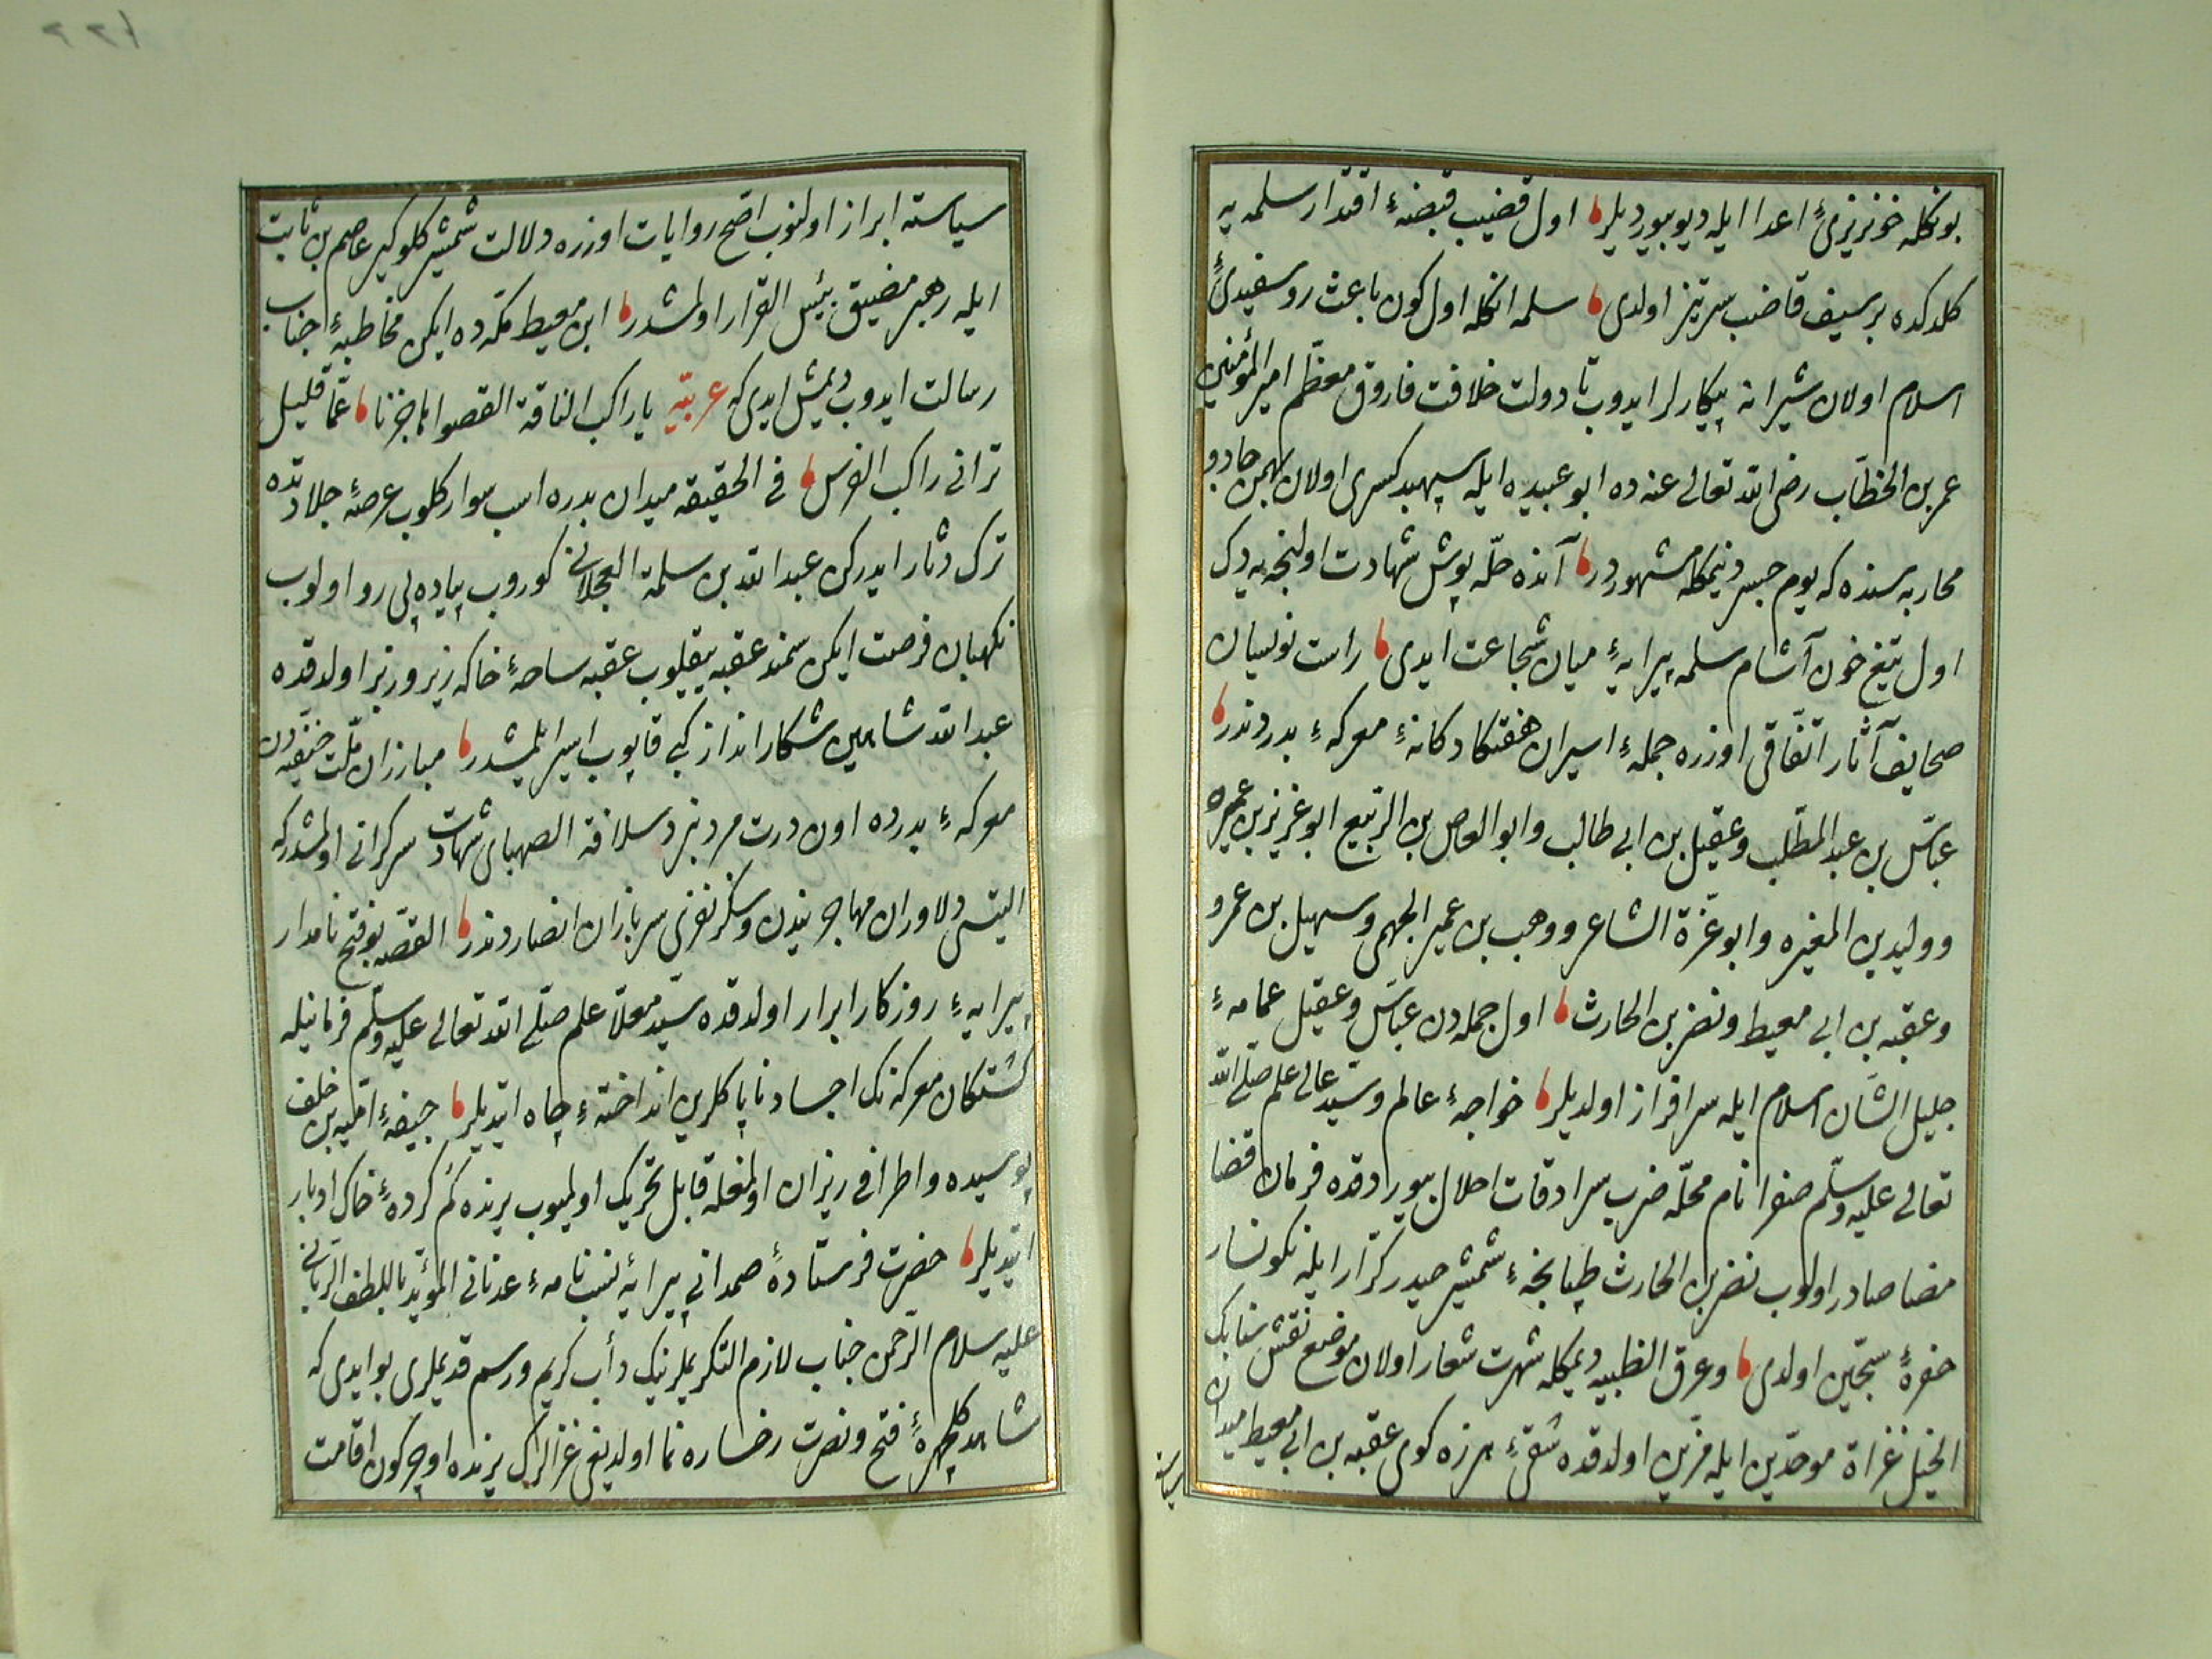 بونكله خونریزیٔ اعدا ایله دیو بیوردیلر اول قضیب قبضهٔ اقتدار سلمه یه
كلدكده بر سیف قاضب سرتیز اولدی سلمه انكله اول كون باعث روسفیدیٔ
اسلام اولان شیرانه پیكارلر ایدوب تا دولت خلافت فاروق معظّم امیر المؤمنین
عمر بن الخطّاب رضی الله تعالی عنه ده ابو عبیده ایله سپهبد كسری اولان بهمن جادو
محاربه سنده كه یوم جسر دیمكله مشهوردر آنده حلّه پوش شهادت اولنجه یه دك
اول تیغ خون آشام سلمه پیرایهٔ میان شجاعت ایدی راست نویسان
صحایف آثار اتّفاقی اوزره جملهٔ اسیران هفتكادكانهٔ معركهٔ بدردندر
عبّاس بن عبد المطّلب وعقیل بن ابی طالب وابو العاص بن الرّبیع ابو عزیز بن عمیره
وولید بن المغیره وابو عزّة الشاعر ووهب بن عمیر الجهمی وسهیل بن عمرو
وعقبه بن ابی معیط ونضر بن الحارث اول جمله دن عبّاس وعقیل عمامهٔ
جلیل الشّان اسلام ایله سرافراز اولدیلر خواجهٔ عالم وسیّد عالی علم صلّی الله
تعالی علیه وسلّم صفرا نام محلّه ضرب سرادقات اجلال بیوردوقده فرمان قضا
مضا صادر اولوب نضر بن الحارث طپانچهٔ شمشیر حیدر كرّار ایله نكونسار
حفرهٔ سجّین اولدی وعرق الظبیه دیمكله شهرت شعار اولان موضع نقش سنابك
الخیل غزاة موحّدین ایله مزیّن اولدقده شقیٔ هرزه كوی عقبه بن ابی معیط میدان
سیاسته
سیاسته ابراز اولنوب اصحّ روایات اوزره دلالت شمشیر كلوكیر عاصم بن ثابت
ایله رهبر مضیق بئس القرار اولمشدر ابن معیط مكّه ده ایكن مخاطبهٔ جناب
رسالت ایدوب دیمش ایدی كه عربیّه یا راكب الناقة القصوا هاجرنا عمّا قلیل
ترانی راكب الفرس فی الحقیقه میدان بدره اسب سوار كلوب عرصهٔ جلادتده
ترك دثار ایدركن عبد الله بن سلمة العجلانی كوروب پیاده پی رو اولوب
نكهبان فرصت ایكن سمند عقبه ییقیلوب عقبه ساحهٔ خاكه زیر وزبر اولدقده
عبد الله شاهین شكار انداز كبی قاپوب اسیر ایلمیشدر مبارزان ملّت حنیفیّه دن
معركهٔ بدرده اون درت مرد نبرد سلافة الصهبای شهادت سركرانی اولمشدر كه
التیسی دلاوران مهاجریندن وسكز نفری سربازان انصاردندر القصّه بو فتح نامدار
پیرایهٔ روزكار ابرار اولدقده سیّد معلّا علم صلّی الله تعالی علیه وسلّم فرمانیله
كشتكان معركه نك اجساد ناپاكلرین انداختهٔ چاه ایتدیلر جیفهٔ امیّه بن خلف
پوسیده واطرافی ریزان اولمغله قابل تحریك اولمیوب یرنده كم كردهٔ خاك ادبار
ایتدیلر حضرت فرستادهٔ صمدانی پیرایهٔ نسبنامهٔ عدنانی المؤیّد باللطف الرّبّانی
علیه سلام الرّحمن جناب لازم التكریملرینك دأب كریم ورسم قدیملری بو ایدی كه
شاهد كلچهرهٔ فتح ونصرت رخساره نما اولدیغی غزالرك یرنده اوچ كون اقامت